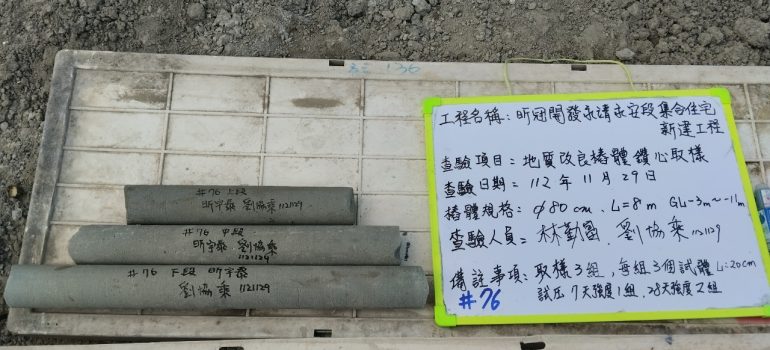 工程名稱:昕冠開發永靖永安段集合住宅
新建工程
查驗項目=地質改良樁體鑽心取樣
查驗日期=112年11月29日
樁體規格:φ80cm、L=8m GL-3m~-11m
查驗人員=林勤富、劉協乘 1121129
備註事項:取樣3組,每組3個試體L=20cm
試压7天強度1組、28天強度2組
#76
#76 上段
昕宇泰 劉協乘 1121129
#76 中段
昕宇泰 劉協乘
1121129
#76 下段 昕宇泰
劉協乘 1121129